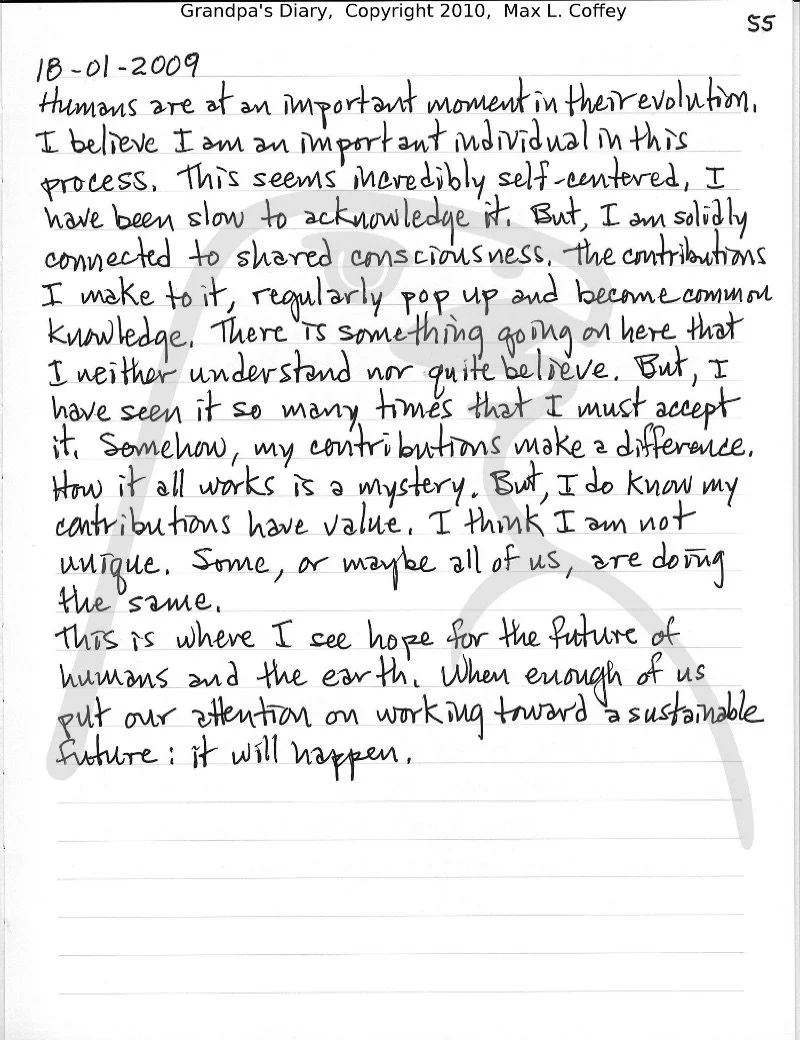 Grandpa's Diary, Copyright 2010, Max L. Coffey
55
18-01-2009
Humans are at an important moment in their evolution.
I believe I am an important individual in this
process. This seems incredibly self-centered, I
have been slow to acknowledge it. But, I am solidly
connected to shared consciousness. The contributions
I make to it, regularly pop up and become common
knowledge. There is something going on here that
I neither understand nor quite believe. But, I
have seen it so many times that I must accept
it. Somehow, my contributions make a difference.
How it all works is a mystery. But, I do know my
contributions have value. I think I am not
unique. Some, or maybe all of us, are doing
the same.
This is where I see hope for the future of
humans and the earth. When enough of us
put our attention on working toward a sustainable
future: it will happen.